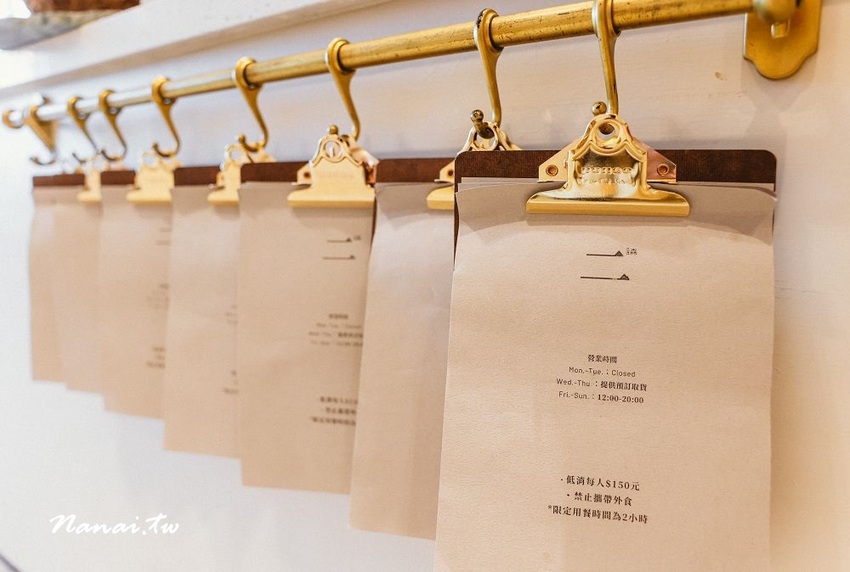 營業時間
Mon.-Tue.：Closed
Wed.-Thu.：提供預訂取貨
Fri.-Sun.：12:00-20:00
·低消每人$150元
·禁止攜帶外食
*限定用餐時間為2小時
Nanai.tw